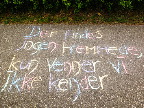 Der findes
ingen fremmede,
kun venner vi
ikke kender